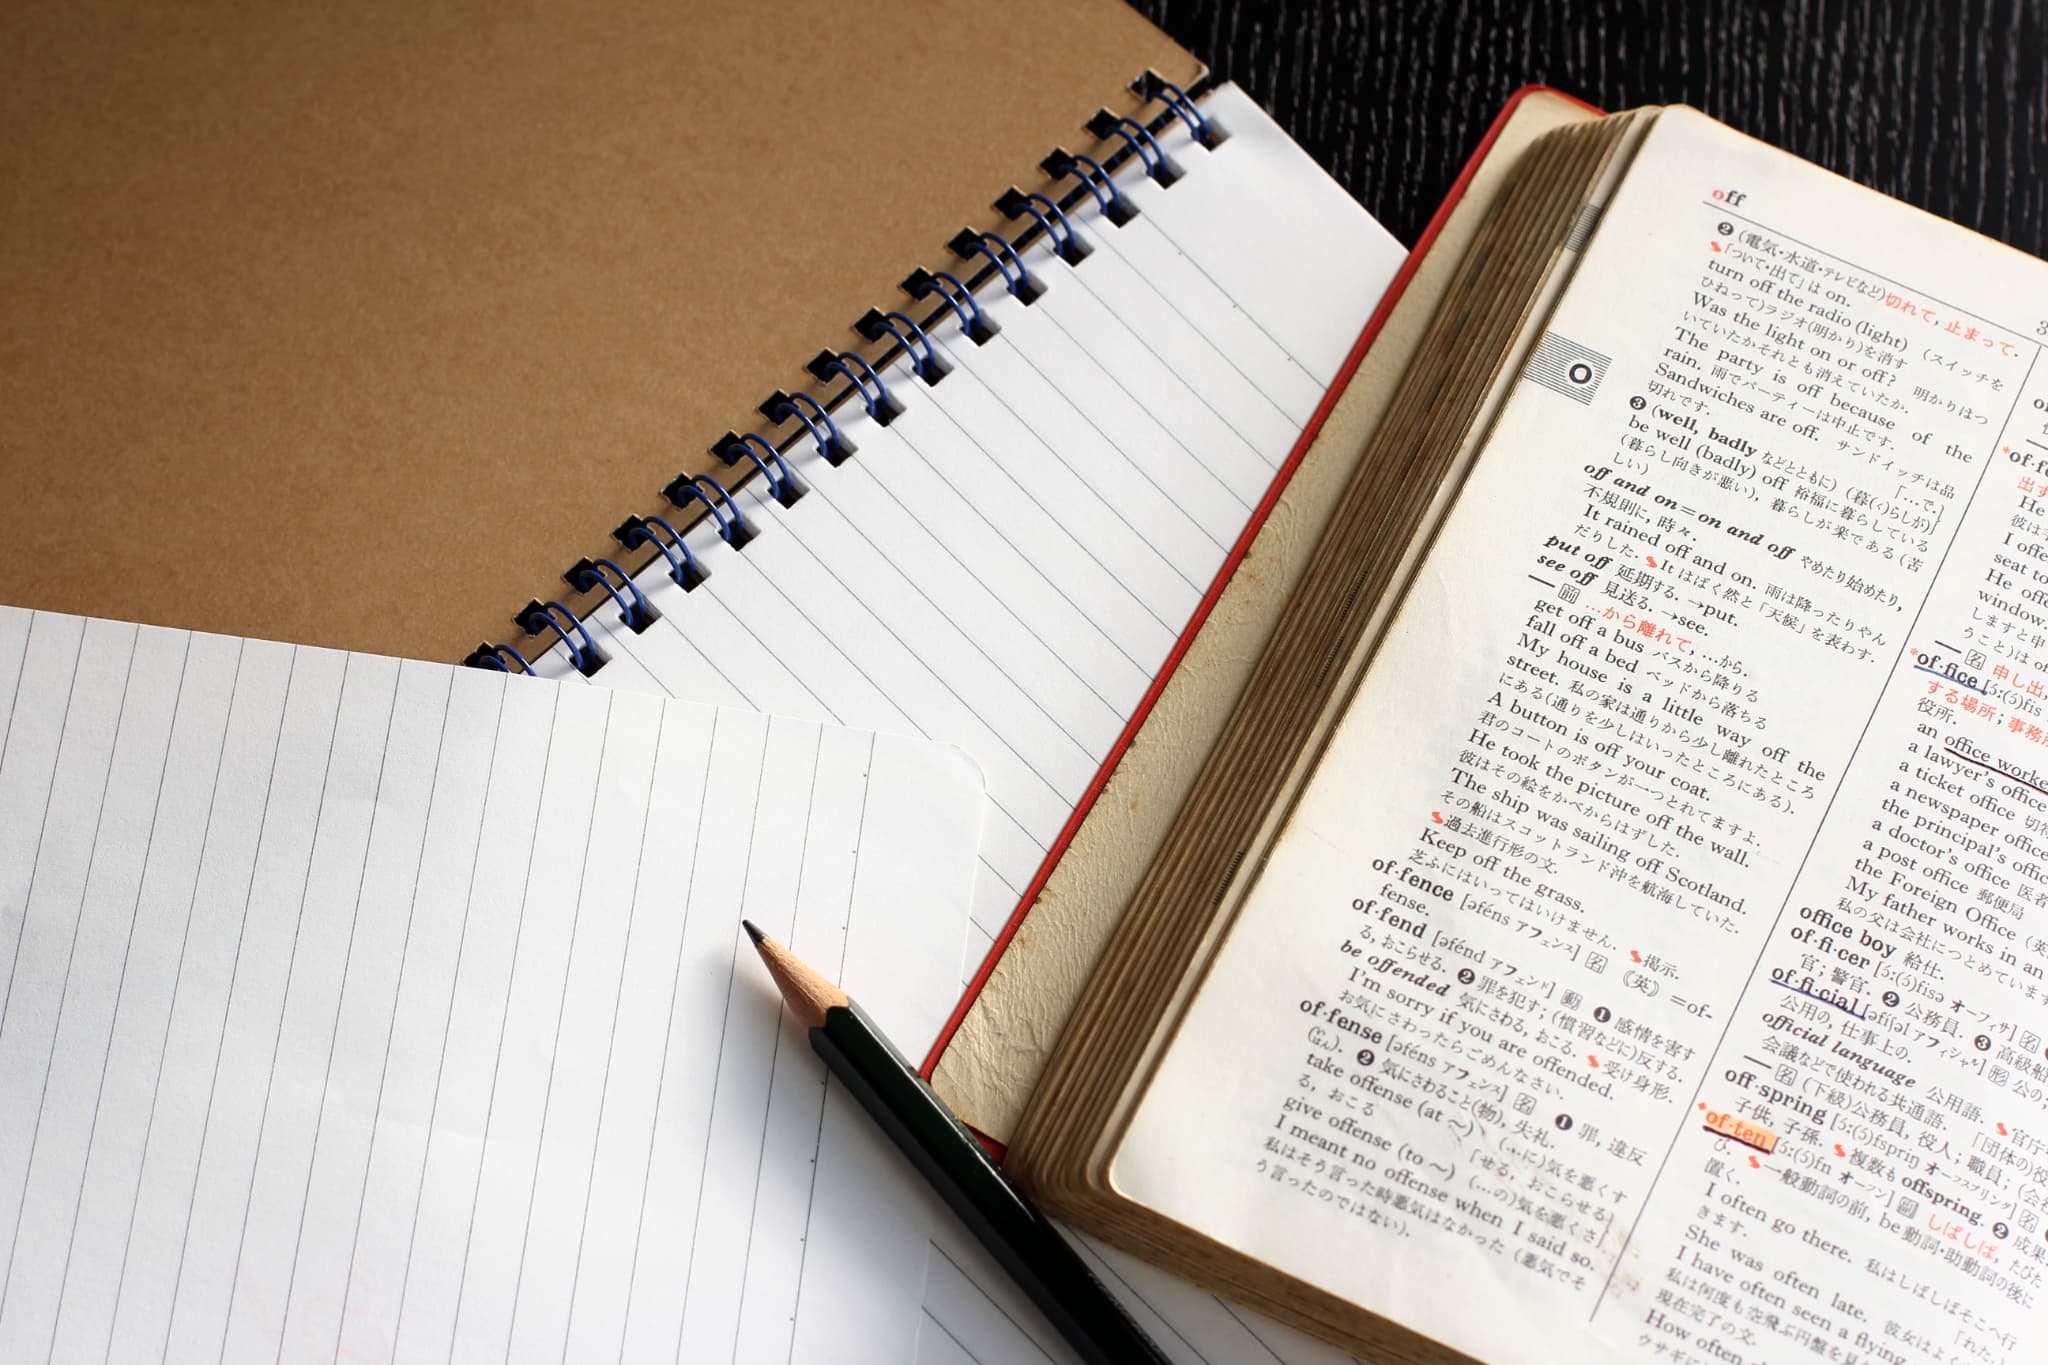 off
❷ (電気・水道・テレビなど)切れて, 止まって.
「ついて・出て」は on.
turn off the radio (light) (スイッチを
ひねって)ラジオ(明かり)を消す
Was the light on or off? 明かりはつ
いていたかそれとも消えていたか.
The party is off because of the
rain. 雨でパーティーは中止です.
Sandwiches are off. サンドイッチは品
切れです. 「…で.
❸ (well, badly などとともに) (暮(く)らしが)
be well (badly) off 裕福に暮らしている
(暮らし向きが悪い), 暮らしが楽である(苦
しい)
off and on=on and off やめたり始めたり,
不規則に, 時々.
It rained off and on. 雨は降ったりやん
だりした. It はばく然と「天候」を表わす.
put off 延期する. →put.
see off 見送る. →see.
— 前 …から離れて, …から.
get off a bus バスから降りる
fall off a bed ベッドから落ちる
My house is a little way off the
street. 私の家は通りから少し離れたところ
にある(通りを少しはいったところにある).
A button is off your coat.
君のコートのボタンが一つとれてますよ.
He took the picture off the wall.
彼はその絵をかべからはずした.
The ship was sailing off Scotland.
その船はスコットランド沖を航海していた.
過去進行形の文.
Keep off the grass.
芝ふにはいってはいけません. 掲示.
of·fence [əféns アフェンス] 名 《英》=of-
fense.
of·fend [əfénd アフェンド] 動 ❶ 感情を害す
る, おこらせる. ❷ 罪を犯す; (慣習などに)反する.
be offended 気にさわる, おこる. 受け身形.
I'm sorry if you are offended.
お気にさわったらごめんなさい.
of·fense [əféns アフェンス] 名 ❶ 罪, 違反
(はん). ❷ 気にさわること(物), 失礼.
take offense (at ~) (…に)気を悪くす
る, おこる 「せる, おこらせる
give offense (to ~) (…の)気を悪くさ
I meant no offense when I said so.
私はそう言った時悪気はなかった (悪気でそ
う言ったのではない).
O
He
彼は
I offe
seat to
He offe
window.
しますと申
うこと)は
— 名 申し出,
of·fice [ɔ́:(ɔ́)fis
する場所; 事務所
役所.
an office worke
a lawyer's office
a ticket office 切
a newspaper office
the principal's offic
a doctor's office 医者
a post office 郵便局
the Foreign Office (英
My father works in an
私の父は会社につとめています
office boy 給仕.
of·fi·cer [ɔ́:(ɔ́)fisə オーフィサ] 名
官; 警官. ❷ 公務員. ❸ 高級船
of·fi·cial [əfíʃəl アフィシャル] 形 公の,
公用の, 仕事上の.
official language 公用語. 官庁
会議などで使われる共通語. 「団体の)役
— 名 (下級)公務員, 役人; 職員; (会社
off·spring [ɔ́:(ɔ́)fspriŋ オーフスプリング] 名
子供, 子孫. 複数も offspring. ❷ 成果
of·ten [ɔ́:(ɔ́)fn オーフン] 副 しばしば, たびた
び. 一般動詞の前, be 動詞・助動詞の後に
置く.
I often go there. 私はしばしばそこへ行
きます.
She was often late. 彼女はよく
I have often seen a flying
私は何度も空飛ぶ円盤を見
現在完了の文.
How often
ウサギに